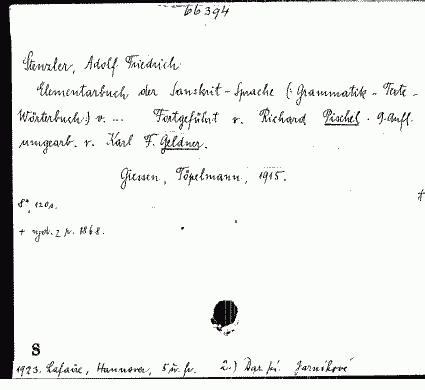 66394
Stenzler, Adolf Friedrich
Elementarbuch der Sanskrit-Sprache (: Grammatik - Texte -
Wörterbuch:) v. ... Fortgeführt v. Richard Pischel. 9. Aufl.
umgearb. v. Karl F. Geldner.
Giessen, Töpelmann, 1915.
8°, 120 s.
+ vyd. z r. 1868.
S
1923. Lafaire, Hannover, 2.) Dar pí. Jarníkové